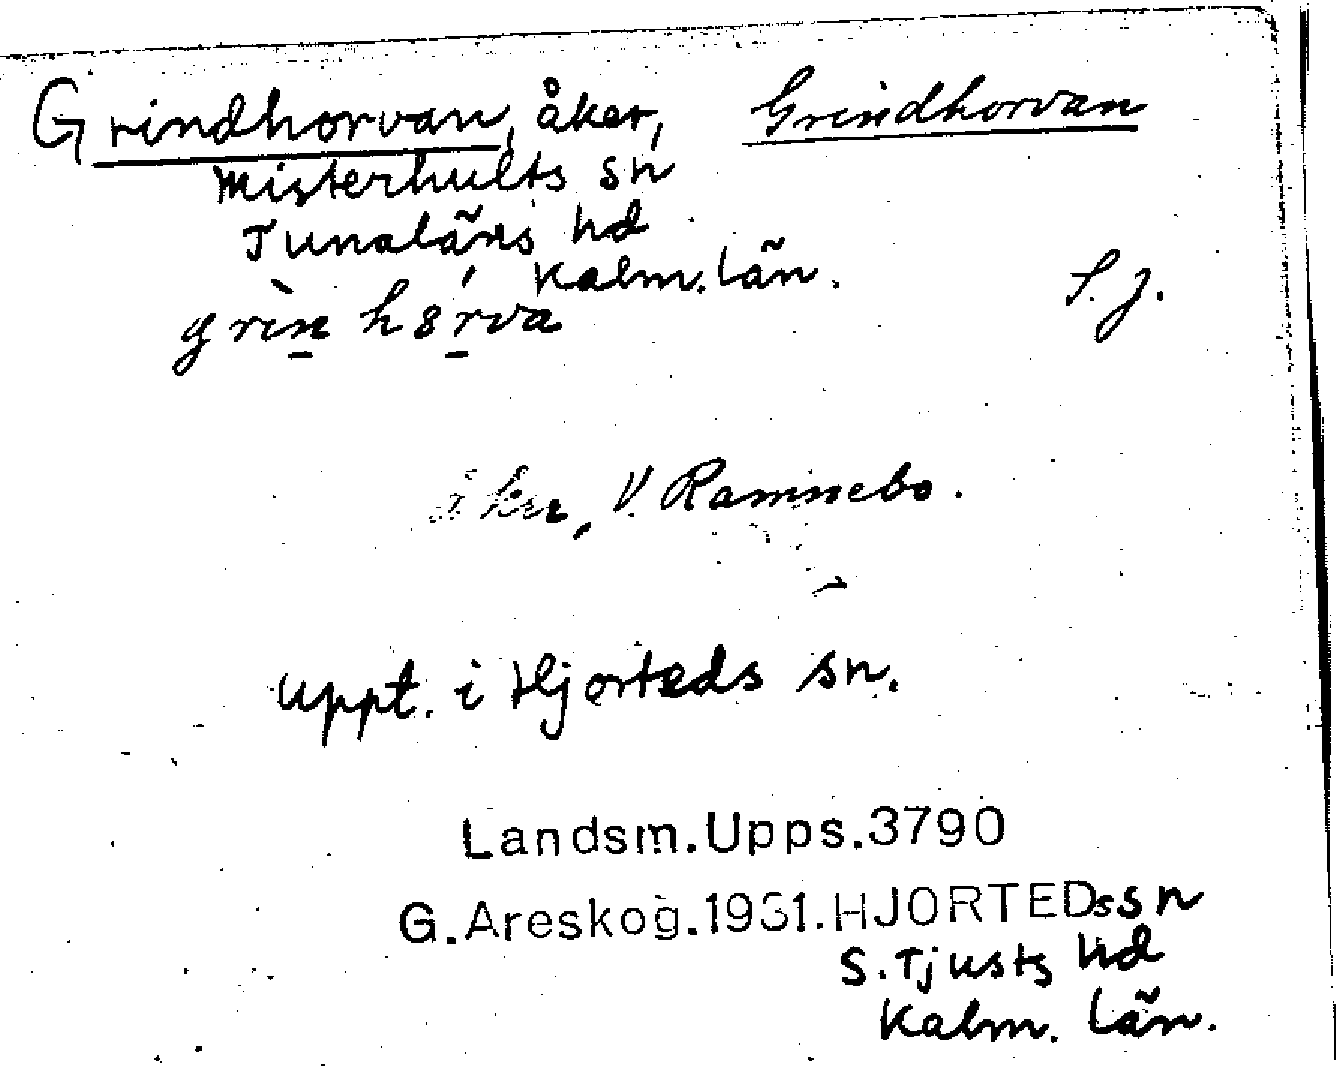 Grindhorvan, åker, Grindhorvan
Misterhults sn
Tunaläns hd
Kalm. län.
S. j.
grìn hórva
åker, V. Ramnebo.
Uppt. i Hjorteds sn.
Landsm.Upps.3790
G.Areskog.1931.HJORTEDs sn
S. Tjusts hd
Kalm. län.